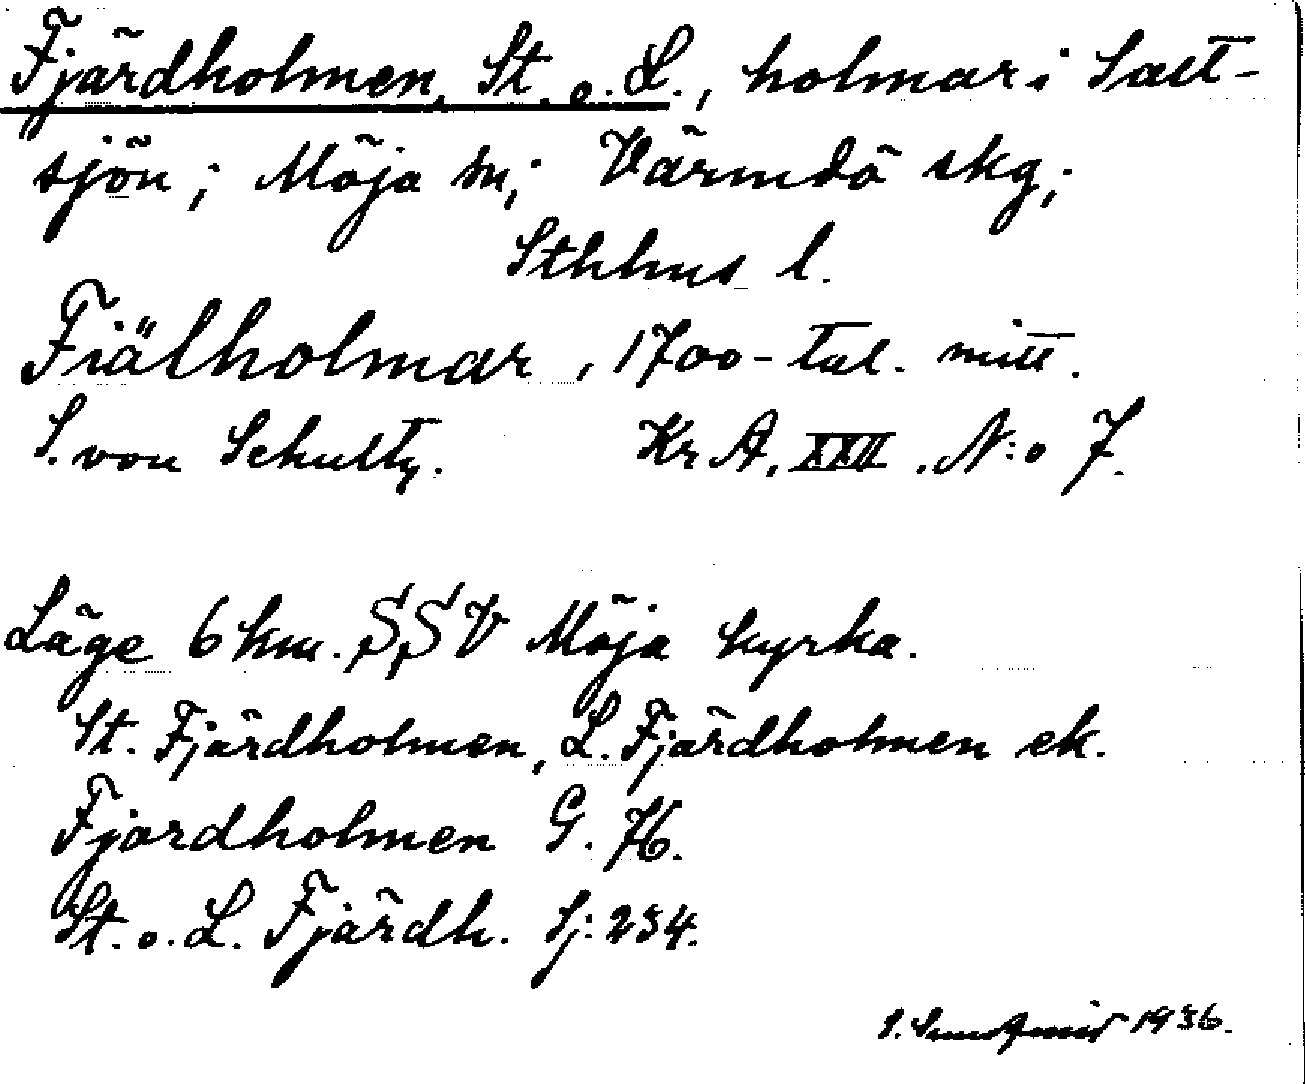 Fjärdholmen, St. o. L., holmar i Salt-
sjön; Möja sn; Värmdö skg;
Sthlms l.
Fiälholmar, 1700-tal. mitt.
S. von Schultz. Kr A, XXII. N:o 7.
Läge 6 km. SSV Möja kyrka.
St. Fjärdholmen, L. Fjärdholmen ek.
Fjärdholmen G. K.
St. o. L. Fjärdh. Sj: 234.
1936.